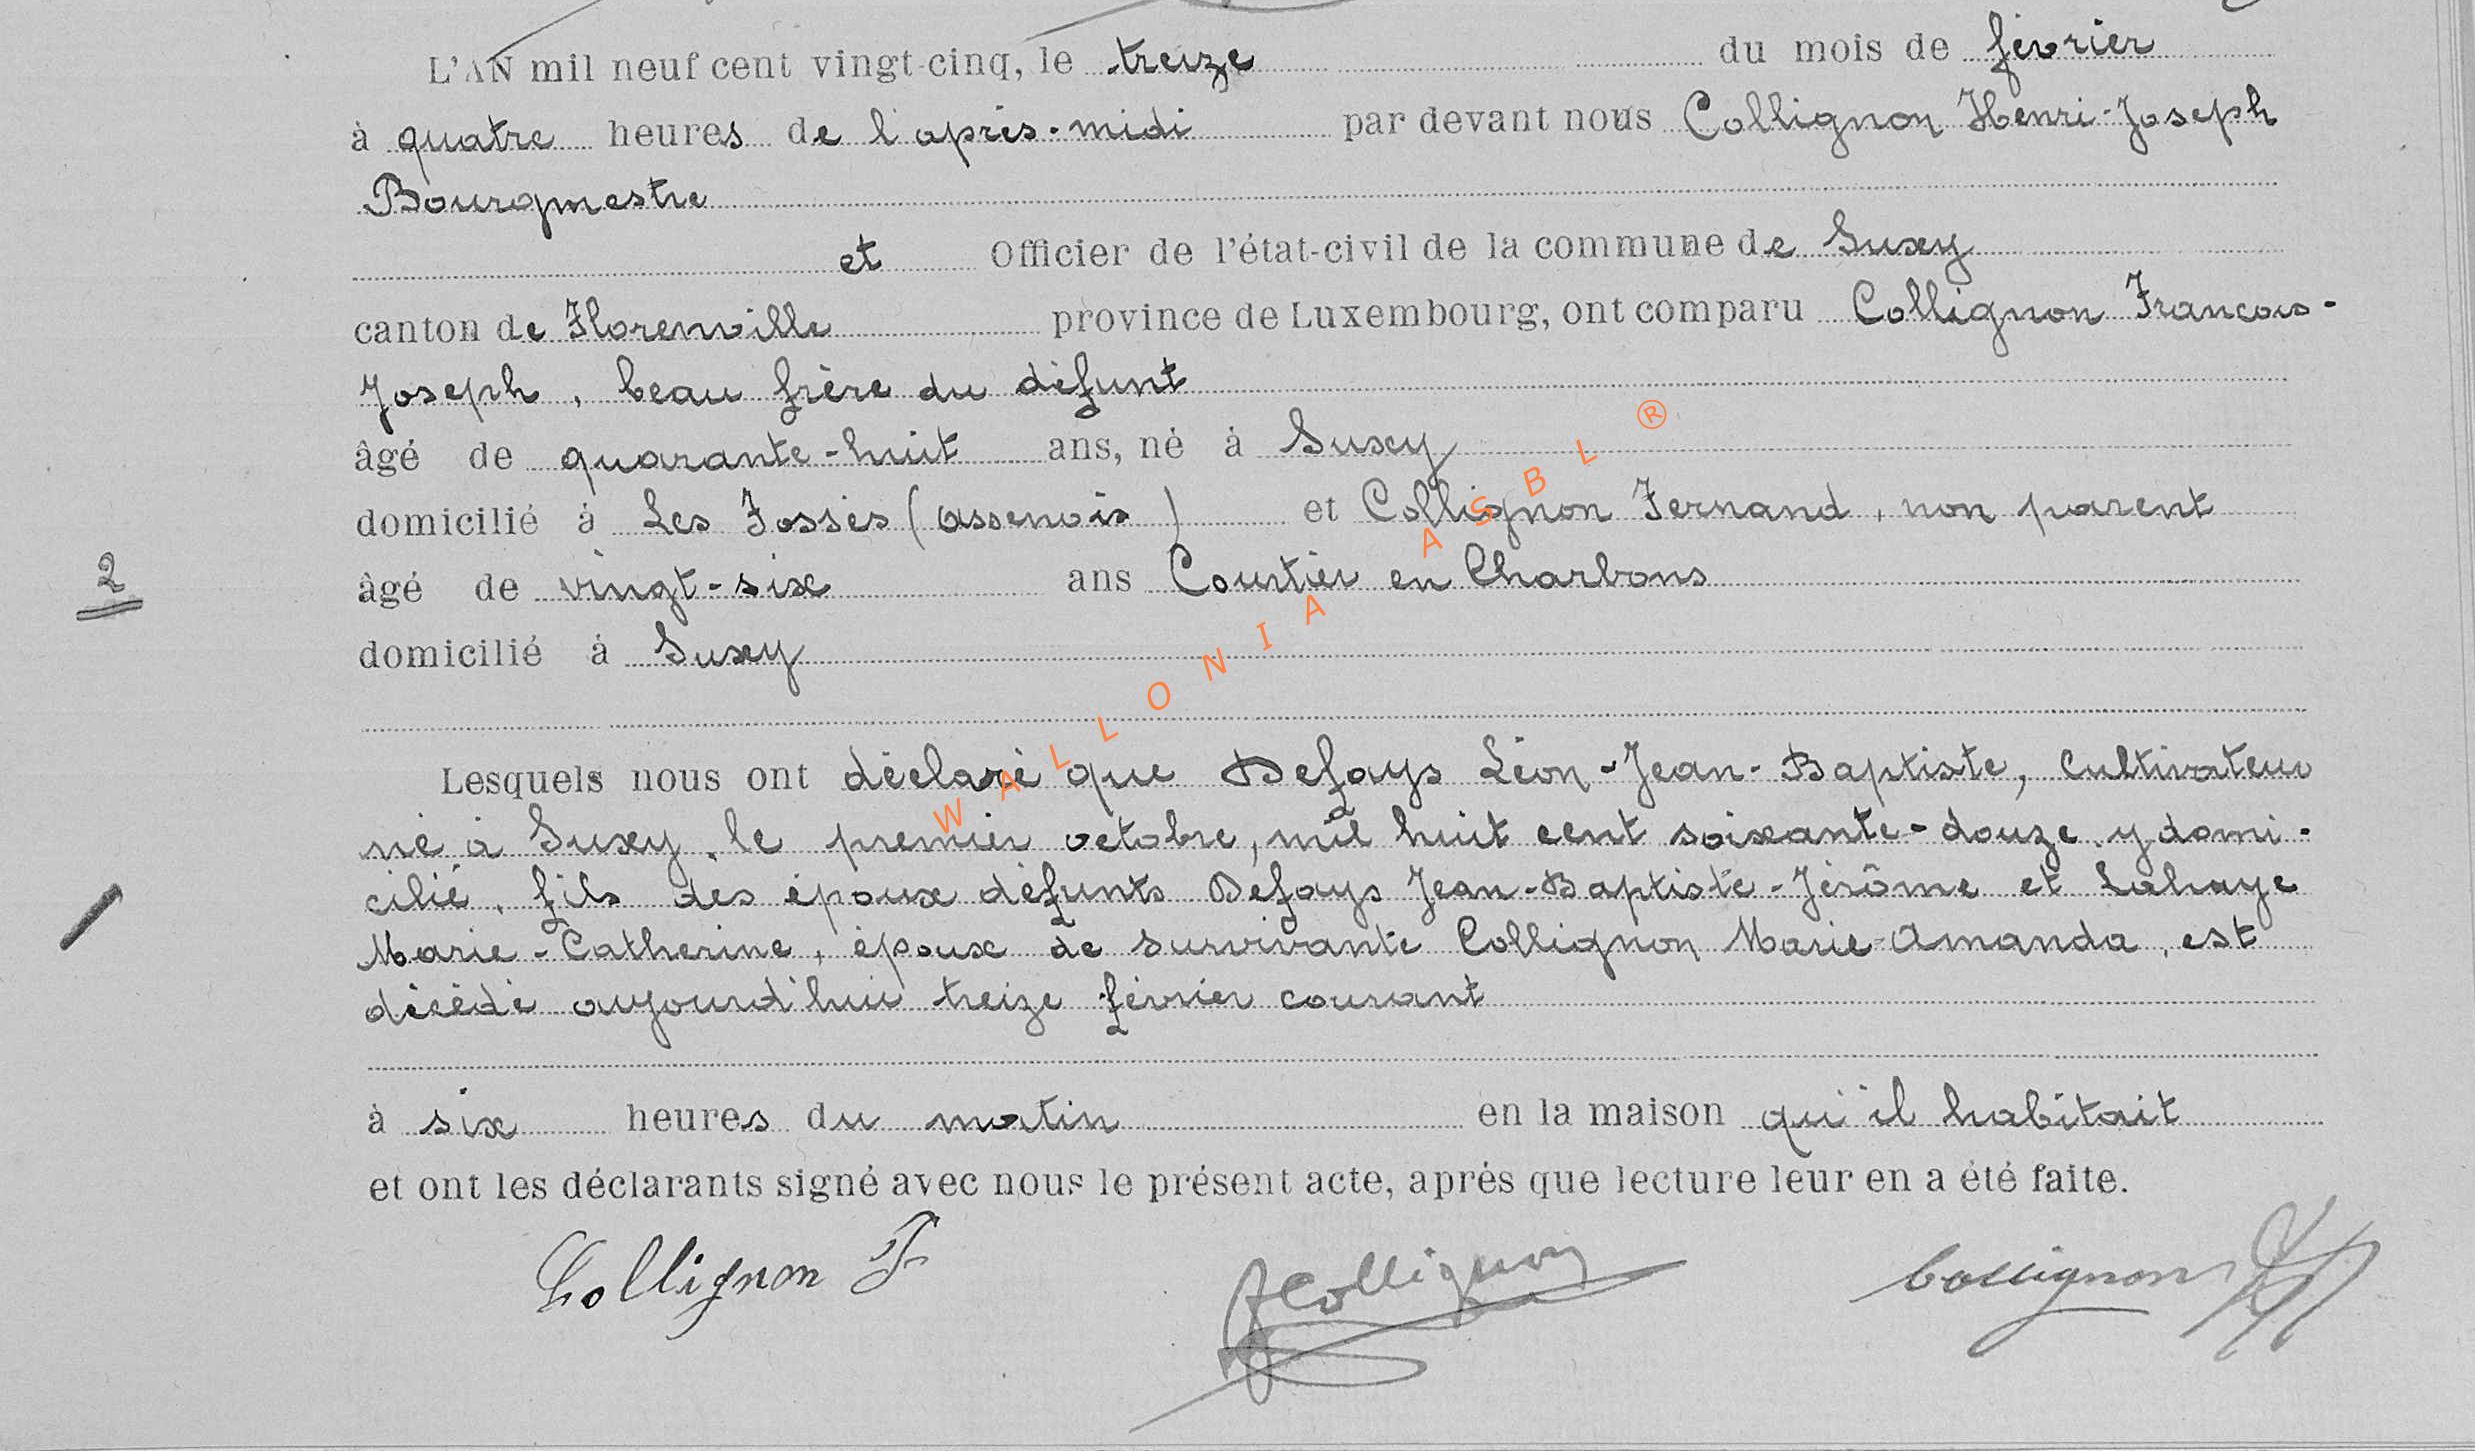 L'AN mil neuf cent vingt-cinq, le treize du mois de février
à quatre heures de l'après-midi par devant nous Collignon Henri-Joseph
Bourgmestre
et Officier de l'état-civil de la commune de Suxy
canton de Florenville province de Luxembourg, ont comparu Collignon Francois-
Joseph, beau frère du défunt
âgé de quarante-huit ans, né à Suxy
domicilié à Les Fossés (assenois) et Collignon Fernand, non parent
2
âgé de vingt-six ans Courtier en Charbons
domicilié à Suxy
Lesquels nous ont déclaré que Defays Léon-Jean-Baptiste, Cultivateur
né à Suxy, le premier octobre, mil huit cent soixante-douze, y domi-
cilié, fils des époux défunts Defays Jean-Baptiste-Jérôme et Lahaye
Marie-Catherine, époux de survivante Collignon Marie-Amanda, est
décédé aujourd'hui treize février courant
à six heures du matin en la maison qu'il habitait
et ont les déclarants signé avec nous le présent acte, après que lecture leur en a été faite.
Collignon F
FCollignon
Collignon
WALLONIA ASBL ®